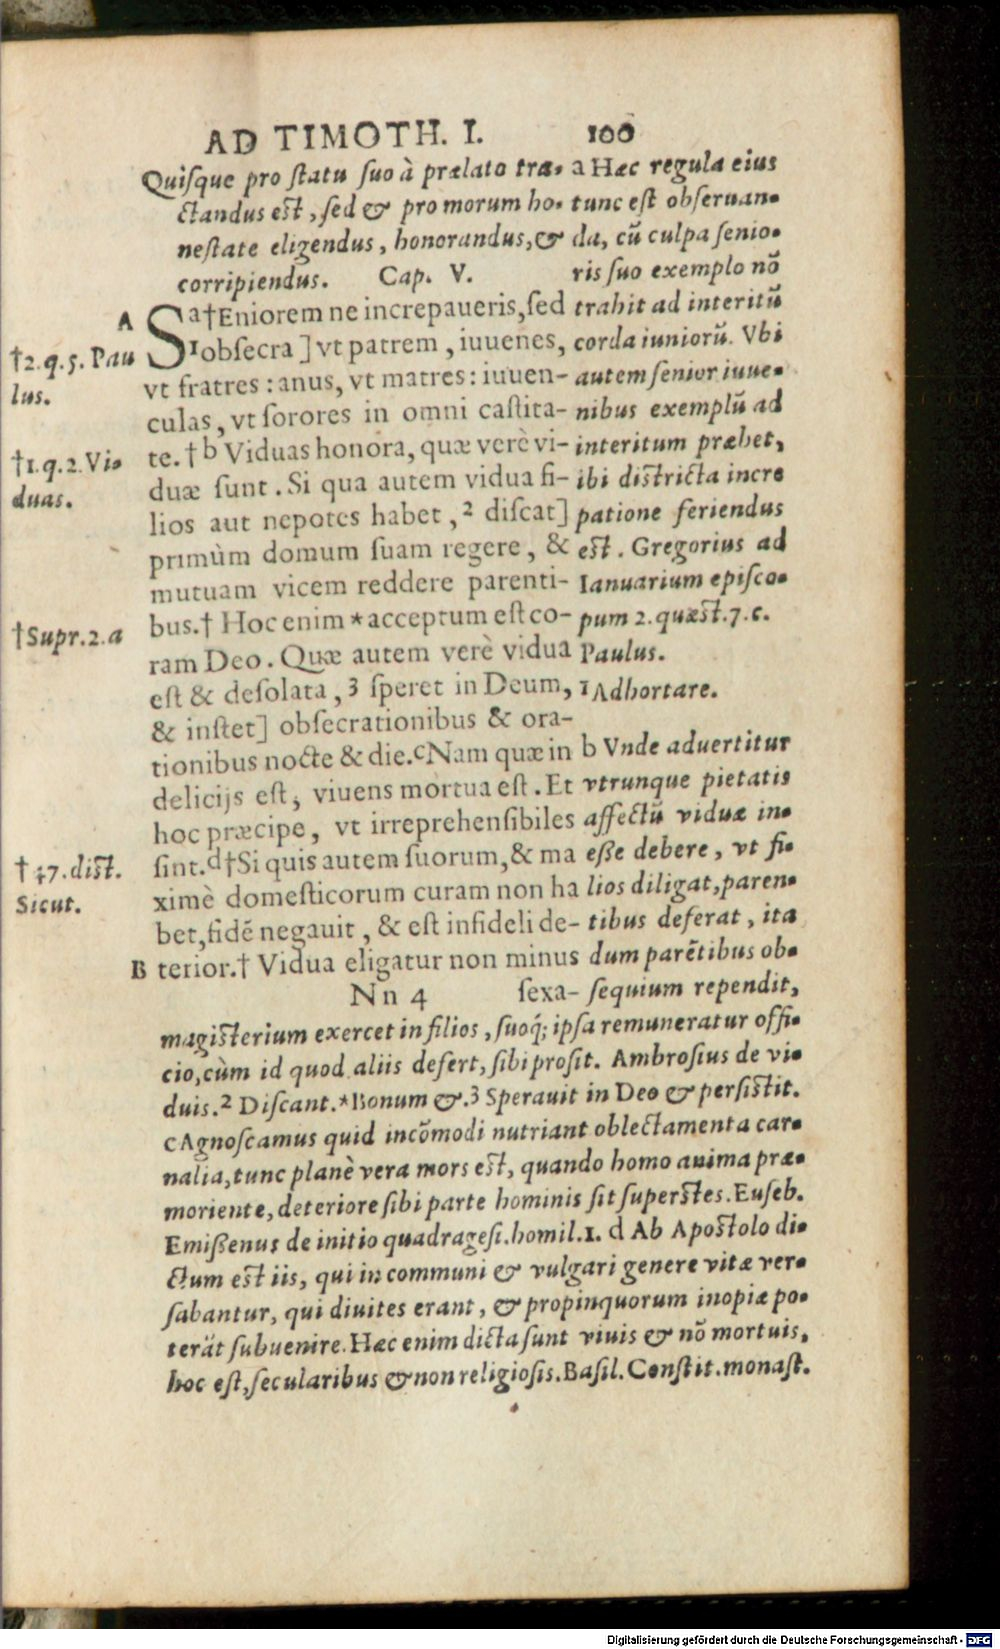 AD TIMOTH. I. 100
Quiſque pro ſtatu ſuo à prælato tra-
ctandus eſt, ſed & pro morum ho-
neſtate eligendus, honorandus, &
corripiendus. Cap. V.
A
Sa†Eniorem ne increpaueris, ſed
1obſecra ] vt patrem, iuuenes,
vt fratres: anus, vt matres: iuuen-
culas, vt ſorores in omni caſtita-
te. † b Viduas honora, quæ verè vi-
duæ ſunt. Si qua autem vidua fi-
lios aut nepotes habet, 2 diſcat]
primùm domum ſuam regere, &
mutuam vicem reddere parenti-
bus.† Hoc enim *acceptum eſt co-
ram Deo. Quæ autem verè vidua
eſt & deſolata, 3 ſperet in Deum,
& inſtet] obſecrationibus & ora-
tionibus nocte & die. cNam quæ in
delicijs eſt, viuens mortua eſt. Et
hoc præcipe, vt irreprehenſibiles
ſint. d†Si quis autem ſuorum, & ma
ximè domeſticorum curam non ha
bet, fidē negauit, & eſt infideli de-
B terior.† Vidua eligatur non minus
Nn 4 ſexa-
†2.q.5. Pau
lus.
†1.q.2. Vi-
duas.
†Supr.2.a
†47.diſt.
Sicut.
a Hæc regula eius
tunc eſt obſeruan-
da, cū culpa ſenio-
ris ſuo exemplo nō
trahit ad interitū
corda iuniorū. Vbi
autem ſenior iuue-
nibus exemplū ad
interitum præbet,
ibi diſtricta incre
patione feriendus
eſt. Gregorius ad
Ianuarium epiſco-
pum 2. quæſt.7.c.
Paulus.
1 Adhortare.
b Vnde aduertitur
vtrunque pietatis
affectū viduæ in-
eſſe debere, vt fi-
lios diligat, paren-
tibus deferat, ita
dum parētibus ob-
ſequium rependit,
magiſterium exercet in filios, ſuoq́; ipſa remuneratur offi-
cio, cùm id quod aliis defert, ſibi proſit. Ambroſius de vi-
duis. 2 Diſcant. *Bonum &. 3 Sperauit in Deo & perſiſtit.
c Agnoſcamus quid incōmodi nutriant oblectamenta car-
nalia, tunc planè vera mors eſt, quando homo anima præ-
moriente, deteriore ſibi parte hominis ſit ſuperſtes. Euſeb.
Emiſſenus de initio quadrageſi. homil.1. d Ab Apoſtolo di-
ctum eſt iis, qui in communi & vulgari genere vitæ ver-
ſabantur, qui diuites erant, & propinquorum inopiæ po-
terāt ſubuenire. Hæc enim dicta ſunt viuis & nō mortuis,
hoc eſt, ſecularibus & non religioſis. Baſil. Conſtit. monaſt.
Digitalisierung gefördert durch die Deutsche Forschungsgemeinschaft - DFG